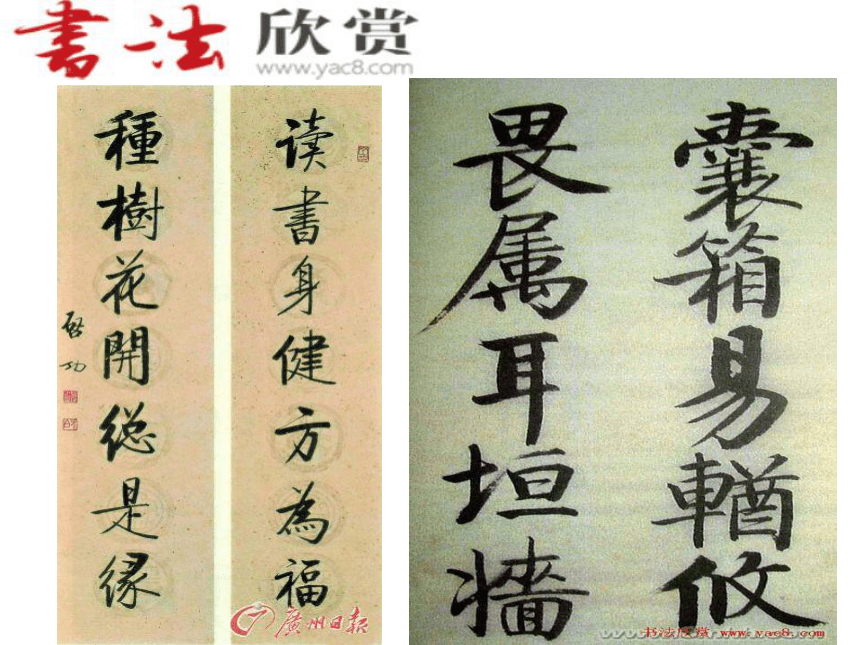 書法 欣赏
www.yac8.com
读書身健方為福
種樹花開総是緣
啓功
廣州日报
囊箱易輶攸
畏属耳垣牆
书法欣赏 www.yac8.com